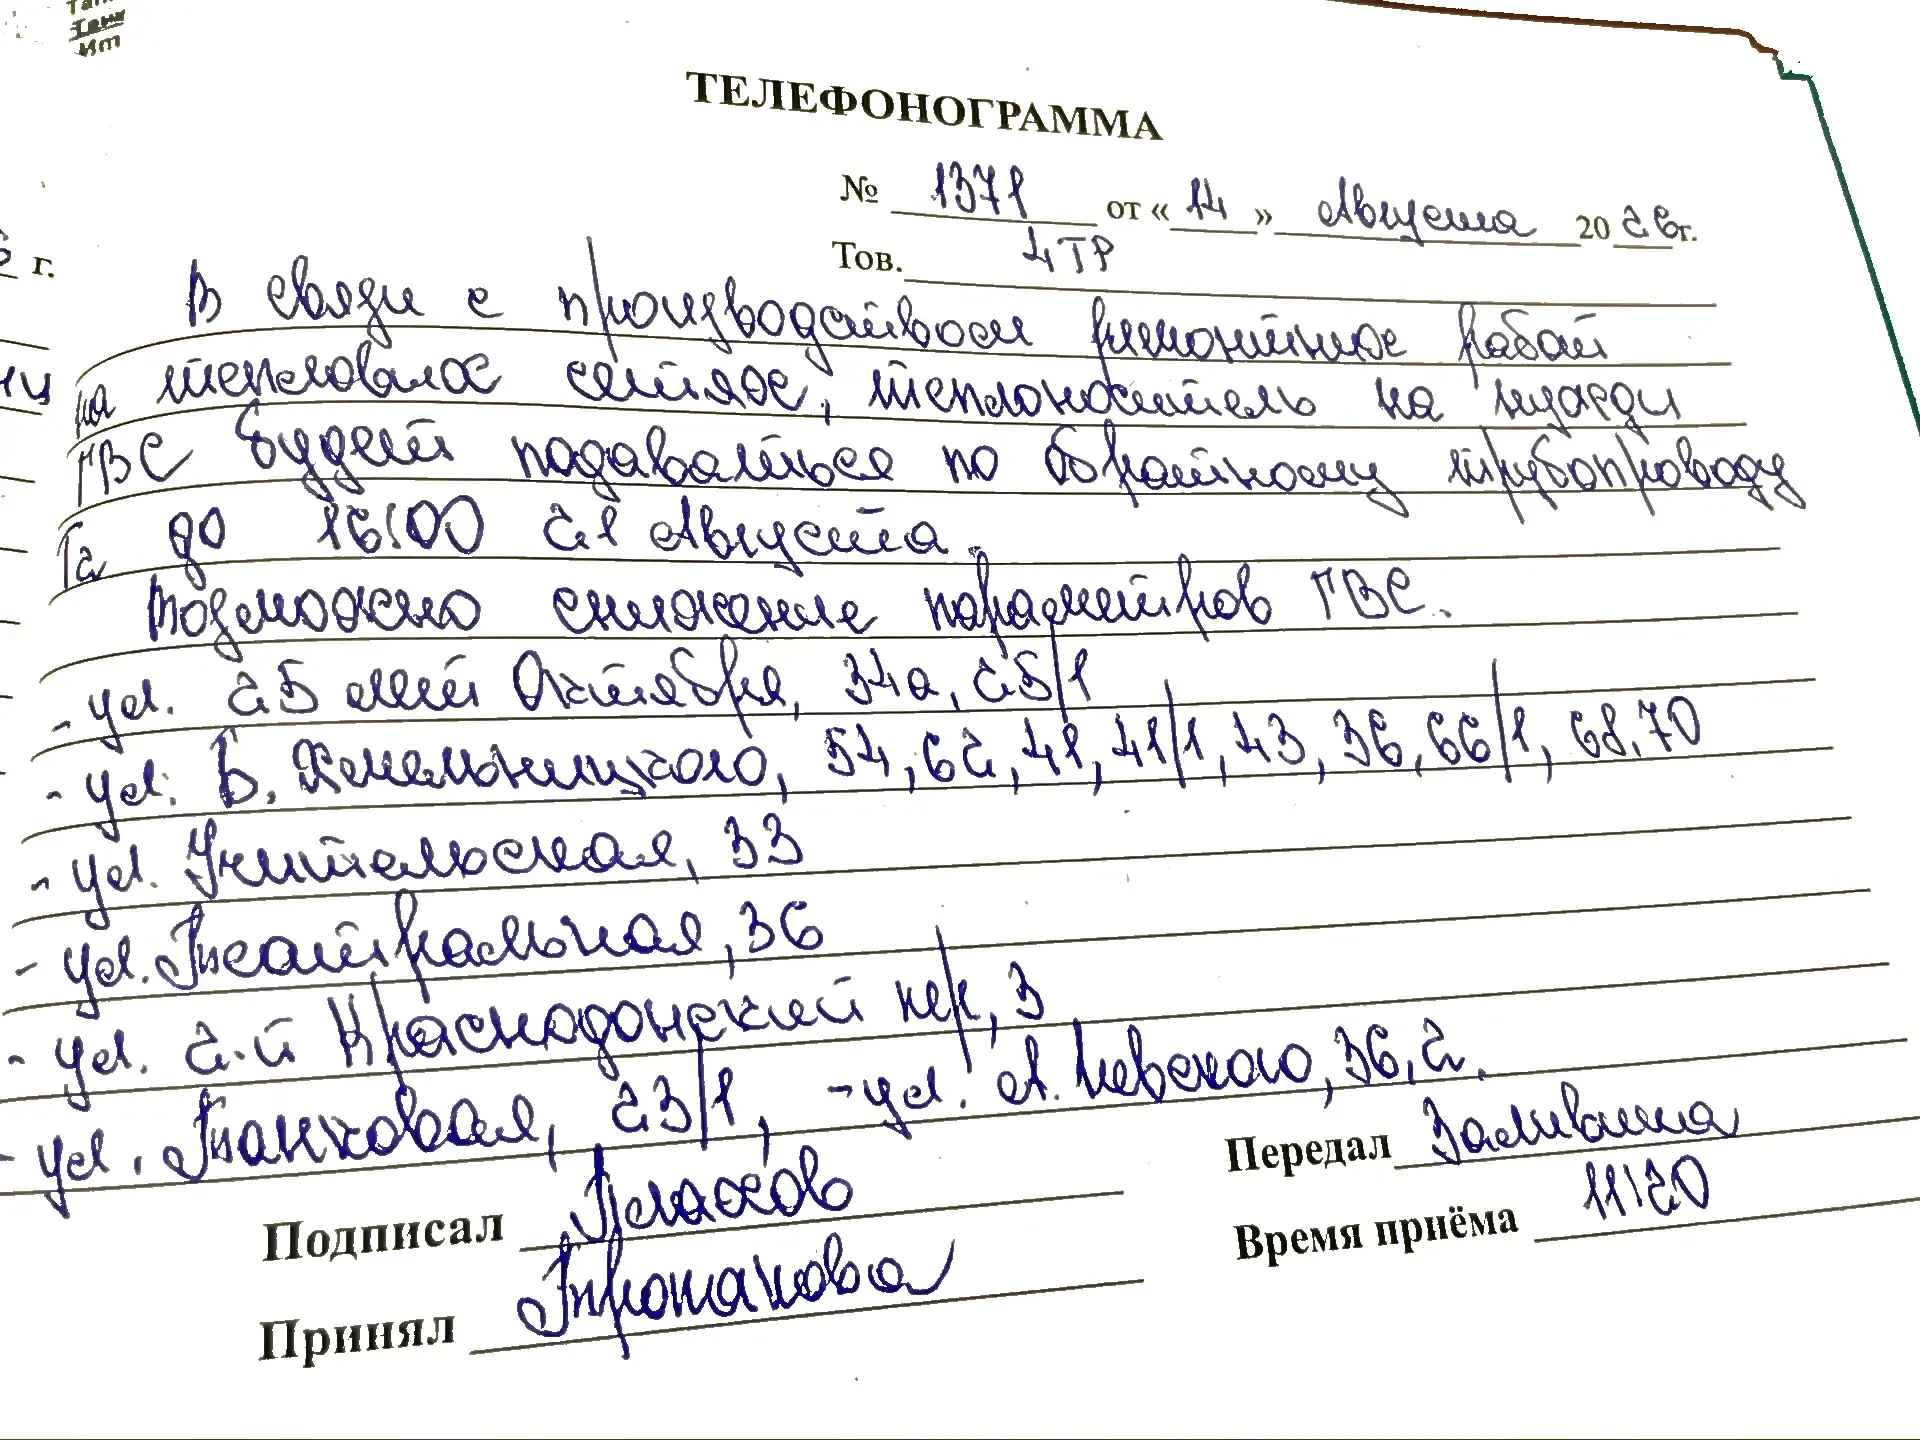 ТЕЛЕФОНОГРАММА
№ 1371 от « 14 » Августа 20 26 г.
Тов. 4ТР
г.
В связи с производством ремонтных работ
на тепловых сетях, теплоноситель на нужды
ГВС будет подаваться по обратному трубопроводу
Т2 до 16:00 21 Августа.
Возможно снижение параметров ГВС.
- ул. 25 лет Октября, 34а, 25/1
- ул. Б. Хмельницкого, 54, 62, 41, 41/1, 43, 36, 66/1, 68, 70
- ул. Учительская, 33
- ул. Театральная, 36
- ул. 2-й Краснодонский пер, 3
- ул. Банковая, 23/1, - ул. А. Невского, 36, 2.
Передал Заливаша
Подписал Плахов
Время приёма 11:20
Принял